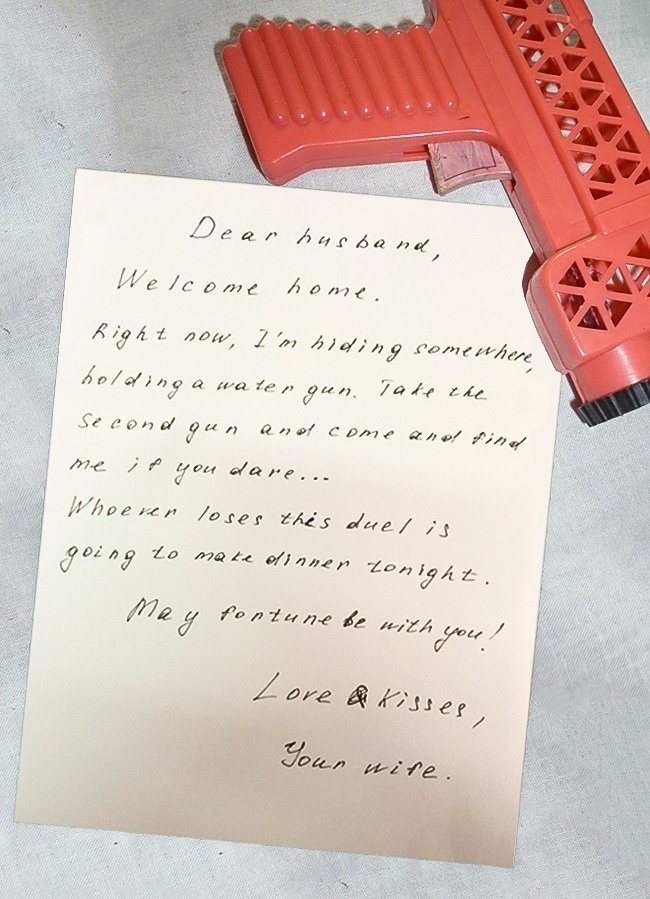 Dear husband,
Welcome home.
Right now, I'm hiding somewhere,
holding a water gun. Take the
second gun and come and find
me if you dare...
Whoever loses this duel is
going to make dinner tonight.
May fortune be with you!
Love & Kisses,
Your wife.